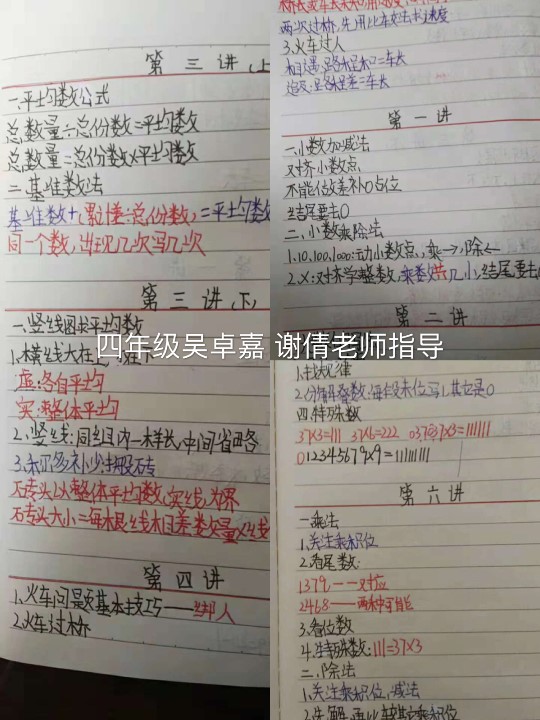 第三讲(上)
一.平均数公式
总数量÷总份数=平均数
总数量=总份数×平均数
二.基准数法
基准数+(累懂÷总份数)=平均数
同一个数,出现几次写几次
第三讲(下)
一.竖线图求平均数
1.横线大在上
虚:各自平均
实:整体平均
2.竖线:同组内一样长,中间省略
3.和,多补少,搬砖
砖头以整体平均数,实线为界
第四讲
1.火车问题基本技巧——绑人
2.火车过桥
两次过桥,先用比车长法求速度
3.火车过人
相遇:路程和=车长
追及:路程差=车长
第一讲
一.小数加减法
对齐小数点
不能估差补0占位
结尾要去0
二.小数乘除法
1.10.100.1000:动小数点,乘→,除←
2.×:对齐学整数,乘数共几小,结尾要去0
第二讲
四年级吴卓嘉 谢倩老师指导
1.找规律
2.分解叠数:每段末位写1,其它录0
四.特殊数
37×3=111 37×6=222
012345679×9=111111111
第六讲
一.乘法
1.关注乘积位
2.看尾数:
1379——对应
2468——两种可能
3.看位数
4.特殊数:111=37×3
二.除法
1.关注乘积位,减法